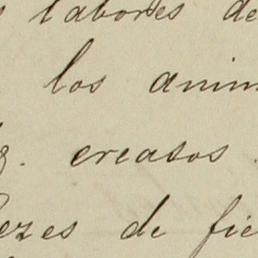 labores de
los anim
creasos
ezes de fie